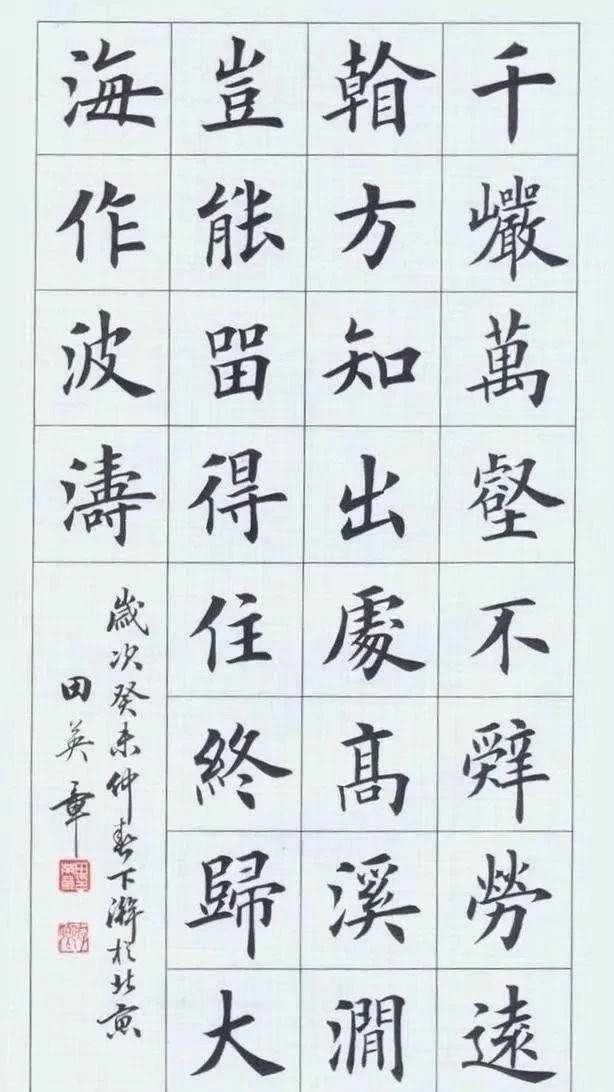 千巖萬壑不辭勞遠
看方知出處高溪澗
豈能留得住終歸大
海作波濤
歲次癸未仲春下澣於北京
田英章